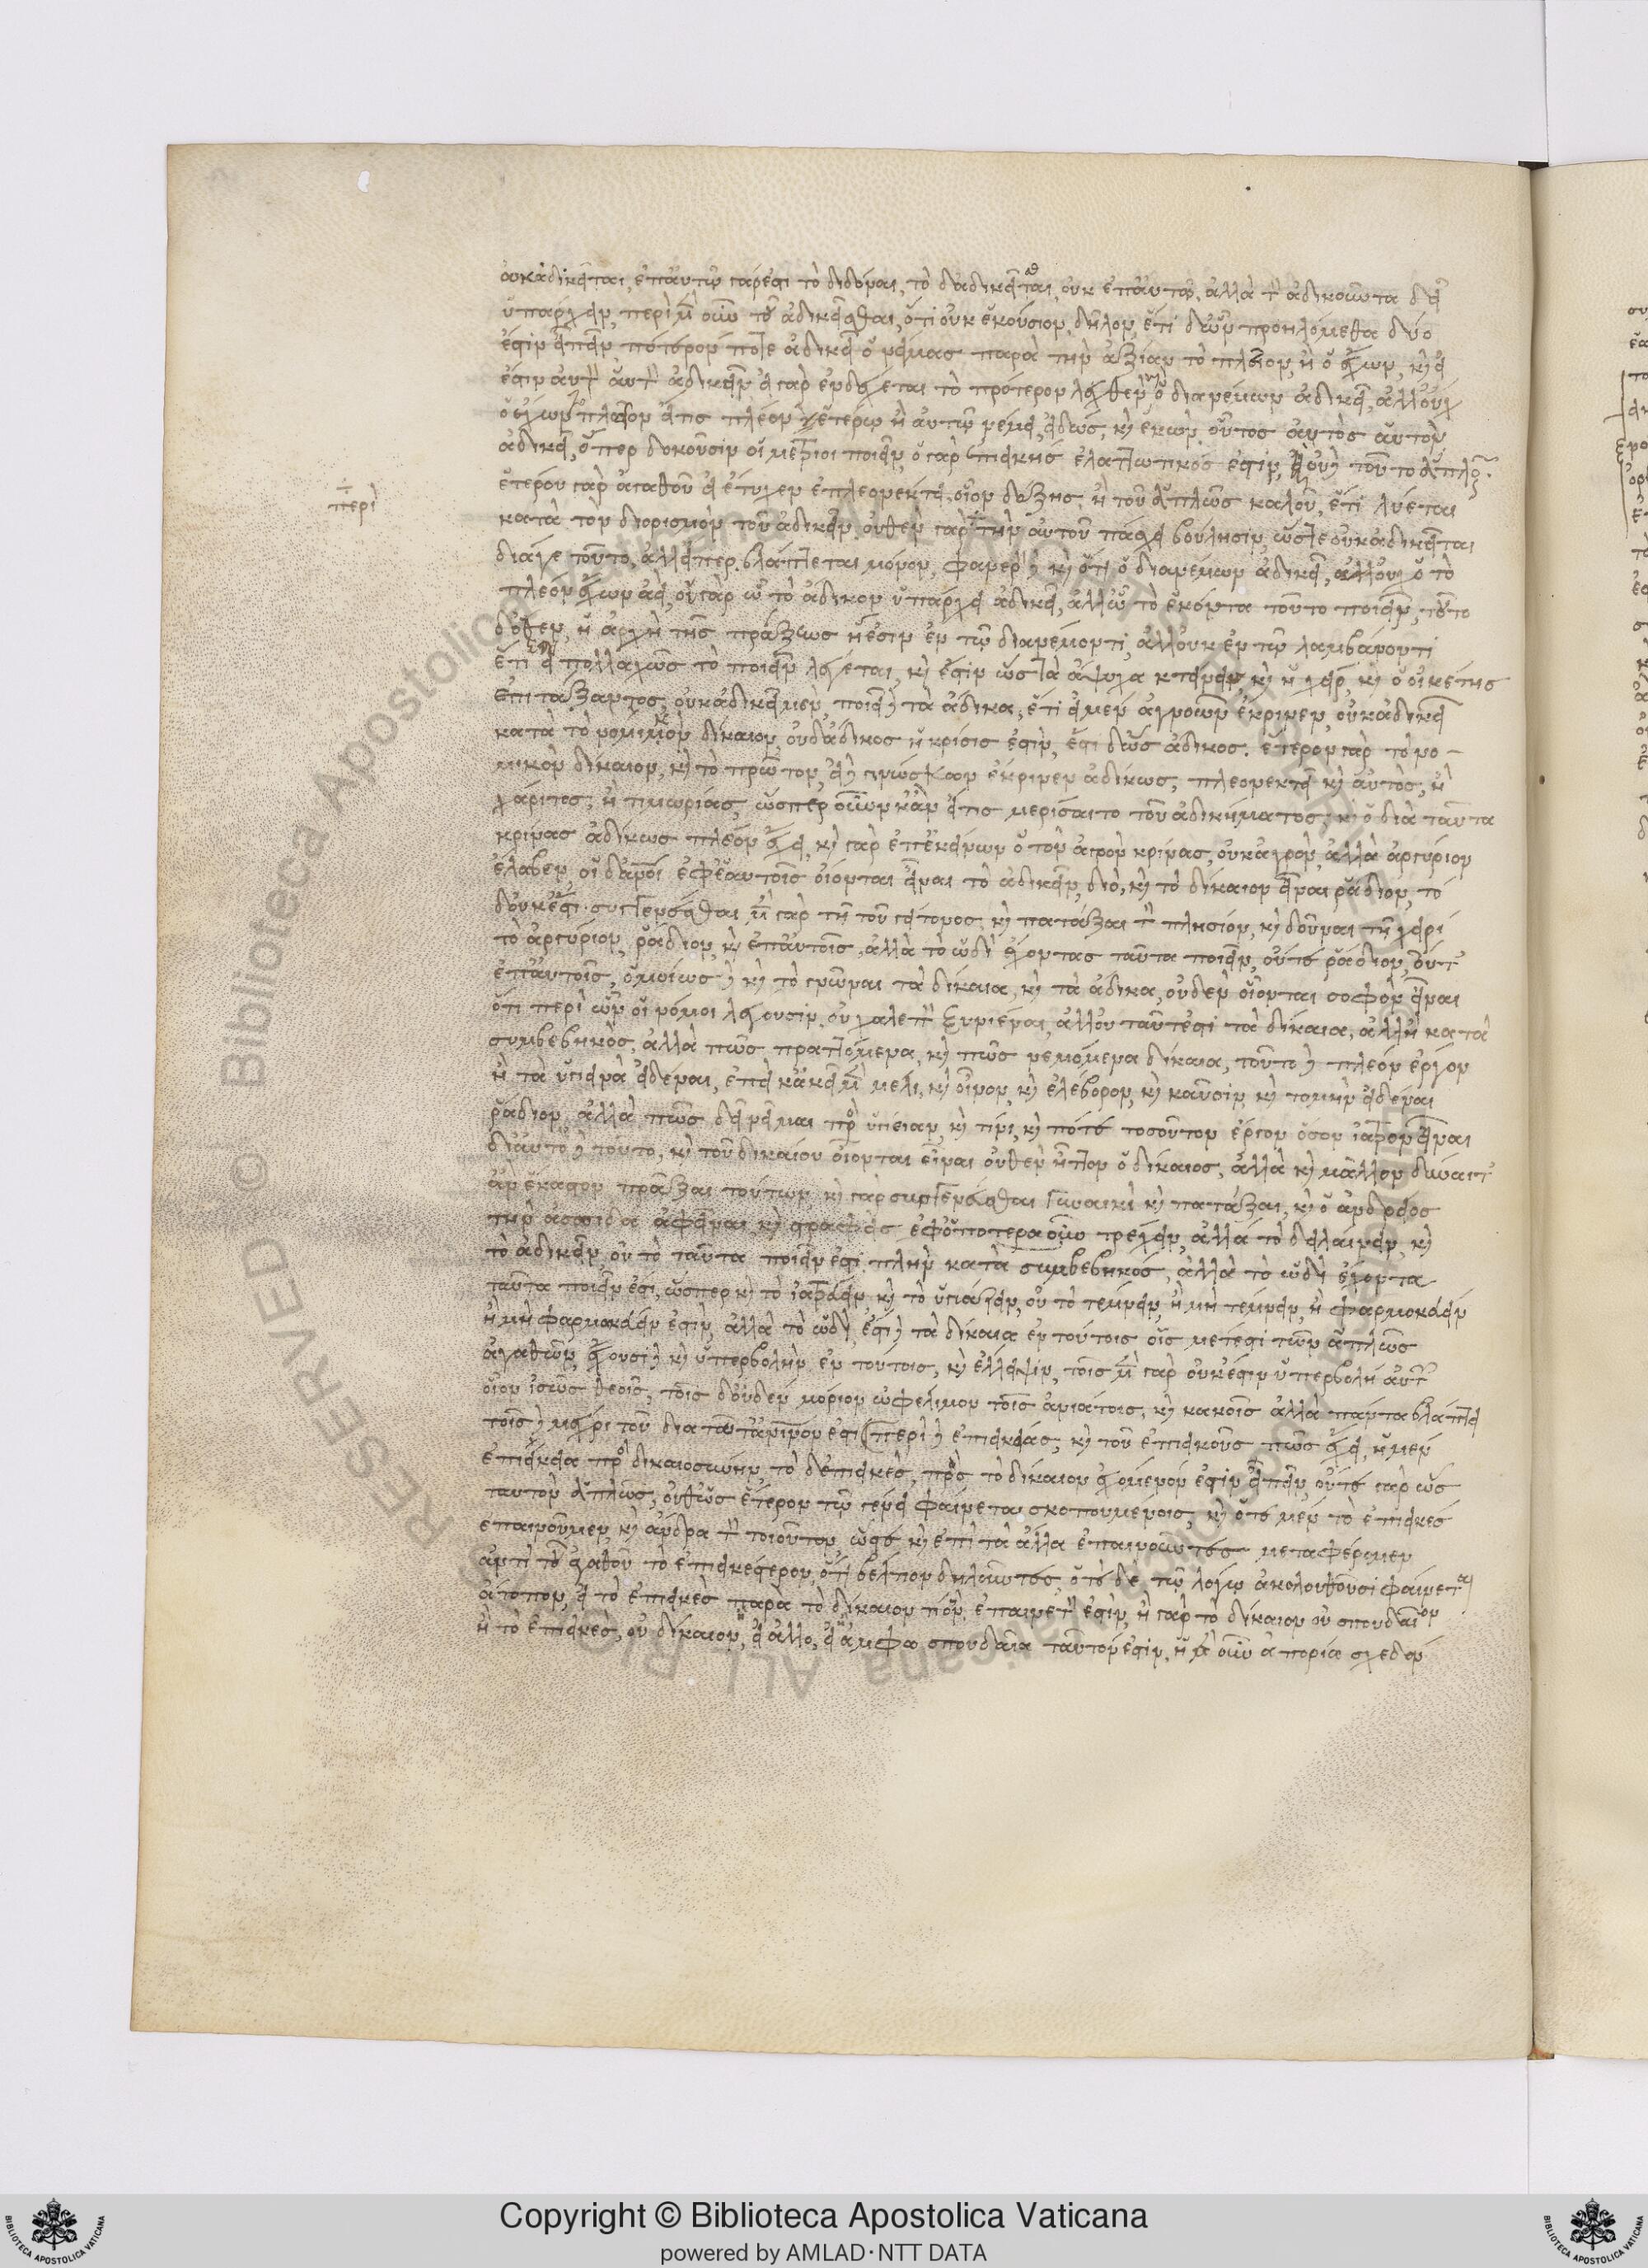 οὐκ ἀδικεῖται, ἐπ' αὐτῷ γάρ ἐστι τὸ διδόναι, τὸ δ' ἀδικεῖσθαι, οὐκ ἐπ' αὐτῷ. ἀλλὰ τὸν ἀδικοῦντα δεῖ
ὑπάρχειν, περὶ μὲν οὖν τοῦ ἀδικεῖσθαι, ὅτι οὐκ ἑκούσιον, δῆλον, ἔτι δ' ὧν προηλόμεθα δύο
ἐστὶν εἰπεῖν πότερόν ποτε ἀδικεῖ ὁ νείμας παρὰ τὴν ἀξίαν τὸ πλεῖον, ἢ ὁ ἔχων, καὶ εἰ
ἔστιν αὐτὸν αὑτὸν ἀδικεῖν εἰ γὰρ ἐνδέχεται τὸ πρότερον λεχθὲν καὶ ὁ διανέμων ἀδικεῖ, ἀλλ' οὐχ
ὁ ἔχων τὸ πλεῖον εἴ τις πλέον ἑτέρῳ ἢ αὑτῷ νέμει, εἰδὼς, καὶ ἑκὼν οὗτος αὐτὸς αὑτὸν
ἀδικεῖ, ὅπερ δοκοῦσιν οἱ μέτριοι ποιεῖν, ὁ γὰρ ἐπιεικὴς ἐλαττωτικός ἐστιν, ἢ οὐδὲ τοῦτο ἁπλοῦν.
ἑτέρου γὰρ ἀγαθοῦ εἰ ἔτυχεν ἐπλεονέκτει, οἷον δόξης ἢ τοῦ ἁπλῶς καλοῦ, ἔτι λύεται
κατὰ τὸν διορισμὸν τοῦ ἀδικεῖν. οὐθὲν γὰρ τὴν αὑτοῦ πάσχει βούλησιν, ὥστε οὐκ ἀδικεῖται
διά γε τοῦτο, ἀλλ' εἴπερ, βλάπτεται μόνον, φανερὸν δὲ καὶ ὅτι ὁ διανέμων ἀδικεῖ, ἀλλ' οὐχ ὁ τὸ
πλέον ἔχων ἀεί, οὐ γὰρ ᾧ τὸ ἄδικον ὑπάρχει ἀδικεῖ, ἀλλ' ᾧ τὸ ἑκόντα τοῦτο ποιεῖν, τοῦτο
δ' ὅθεν, ἡ ἀρχὴ τῆς πράξεως ἥ ἐστιν ἐν τῷ διανέμοντι, ἀλλ' οὐκ ἐν τῷ λαμβάνοντι
ἔτι ἐπεὶ πολλαχῶς τὸ ποιεῖν λέγεται, καὶ ἔστιν ὡς τὰ ἄψυχα κτείνειν, καὶ ἡ χείρ, καὶ ὁ οἰκέτης
ἐπιτάξαντος, οὐκ ἀδικεῖ μέν, ποιεῖ δὲ τὰ ἄδικα, ἔτι εἰ μὲν ἀγνοῶν ἔκρινεν, οὐκ ἀδικεῖ
κατὰ τὸ νομικὸν δίκαιον, οὐδ' ἄδικος ἡ κρίσις ἐστίν, ἔστι δ' ὡς ἄδικος. ἕτερον γὰρ τὸ νο-
μικὸν δίκαιον, καὶ τὸ πρῶτον, εἰ δὲ γινώσκων ἔκρινεν ἀδίκως, πλεονεκτεῖ καὶ αὐτὸς, ἢ
χάριτος, ἢ τιμωρίας, ὥσπερ οὖν κἂν εἴ τις μερίσαιτο τοῦ ἀδικήματος, καὶ ὁ διὰ ταῦτα
κρίνας ἀδίκως πλέον ἔχει, καὶ γὰρ ἐπ' ἐκείνων ὁ τὸν ἀγρὸν κρίνας, οὐκ ἀγρὸν, ἀλλὰ ἀργύριον
ἔλαβεν οἱ δ' ἄνθρωποι ἐφ' ἑαυτοῖς οἴονται εἶναι τὸ ἀδικεῖν, διὸ, καὶ τὸ δίκαιον εἶναι ῥᾴδιον, τό
δ' οὐκ ἔστι. συγγενέσθαι μὲν γὰρ τῇ τοῦ γείτονος, καὶ πατάξαι τὸν πλησίον, καὶ δοῦναι τῇ χειρὶ
τὸ ἀργύριον, ῥᾴδιον, καὶ ἐπ' αὐτοῖς, ἀλλὰ τὸ ὡδὶ ἔχοντας ταῦτα ποιεῖν, οὔτε ῥᾴδιον, οὔτ'
ἐπ' αὐτοῖς, ὁμοίως δὲ καὶ τὸ γνῶναι τὰ δίκαια, καὶ τὰ ἄδικα, οὐδὲν οἴονται σοφὸν εἶναι
ὅτι περὶ ὧν οἱ νόμοι λέγουσιν οὐ χαλεπὸν ξυνιέναι, ἀλλ' οὐ ταῦτ' ἐστὶ τὰ δίκαια, ἀλλ' ἢ κατὰ
συμβεβηκὸς, ἀλλὰ πῶς πραττόμενα, καὶ πῶς νεμόμενα δίκαια, τοῦτο δὲ πλέον ἔργον
ἢ τὰ ὑγιεινὰ εἰδέναι, ἐπεὶ κἀκεῖ μὲν μέλι, καὶ οἶνον, καὶ ἐλέβορον, καὶ καῦσιν, καὶ τομὴν εἰδέναι
ῥᾴδιον, ἀλλὰ πῶς δεῖ νεῖμαι πρὸς ὑγίειαν, καὶ τίνι, καὶ πότε τοσοῦτον ἔργον ὅσον ἰατρὸν εἶναι
δι' αὐτὸ δὲ τοῦτο, καὶ τοῦ δικαίου οἴονται εἶναι οὐθὲν ἧττον ὁ δίκαιος, ἀλλὰ καὶ μᾶλλον δύναιτ'
ἂν ἕκαστον πρᾶξαι τούτων, καὶ γὰρ συγγενέσθαι γυναικὶ καὶ πατάξαι, καὶ ὁ ἀνδρεῖος
τὴν ἀσπίδα ἀφεῖναι, καὶ στραφεὶς ἐφ' ὁποτεραοῦν τρέχειν, ἀλλὰ τὸ δειλαίνειν, καὶ
τὸ ἀδικεῖν, οὐ τὸ ταῦτα ποιεῖν ἐστὶ πλὴν κατὰ συμβεβηκός, ἀλλὰ τὸ ὡδὶ ἔχοντα
ταῦτα ποιεῖν ἐστι, ὥσπερ καὶ τὸ ἰατρεύειν, καὶ τὸ ὑγιάζειν, οὐ τὸ τέμνειν, ἢ μὴ τέμνειν, ἢ φαρμακεύειν
ἢ μὴ φαρμακεύειν ἐστὶν, ἀλλὰ τὸ ὡδὶ, ἔστι δὲ τὰ δίκαια ἐν τούτοις οἷς μέτεστι τῶν ἁπλῶς
ἀγαθῶν, ἔχουσι δὲ καὶ ὑπερβολὴν ἐν τούτοις, καὶ ἔλλειψιν, τοῖς μὲν γὰρ οὐκ ἔστιν ὑπερβολὴ αὐτῶν
οἷον ἴσως θεοῖς, τοῖς δ' οὐδὲν μόριον ὠφέλιμον τοῖς ἀνιάτοις, καὶ κακοῖς ἀλλὰ πάντα βλάπτει
τοῖς δὲ μέχρι τοῦ διὰ τοῦτ' ἀνθρώπινόν ἐστι (περὶ δὲ ἐπιεικείας, καὶ τοῦ ἐπιεικοῦς πῶς ἔχει, ἡ μὲν
ἐπιείκεια πρὸς δικαιοσύνην, τὸ δ' ἐπιεικὲς, πρὸς τὸ δίκαιον ἐχόμενόν ἐστιν εἰπεῖν, οὔτε γὰρ ὡς
ταυτὸν ἁπλῶς, οὔθ' ὡς ἕτερον τῷ γένει φαίνεται σκοπουμένοις, καὶ ὁτὲ μὲν τὸ ἐπιεικὲς
ἐπαινοῦμεν, καὶ ἄνδρα τὸν τοιοῦτον, ὥστε καὶ ἐπὶ τὰ ἄλλα ἐπαινοῦντες μεταφέρομεν
ἀντὶ τοῦ ἀγαθοῦ τὸ ἐπιεικέστερον, ὅτι βέλτιον δηλοῦντες, ὁτὲ δὲ τῷ λόγῳ ἀκολουθοῦσι φαίνεται
ἄτοπον, εἰ τὸ ἐπιεικὲς παρὰ τὸ δίκαιόν τι ὂν, ἐπαινετόν ἐστιν, ἢ γὰρ τὸ δίκαιον οὐ σπουδαῖον
ἢ τὸ ἐπιεικὲς, οὐ δίκαιον, εἰ ἄλλο, εἰ ἄμφω σπουδαῖα ταὐτόν ἐστιν. ἡ μὲν οὖν ἀπορία σχεδὸν
περὶ